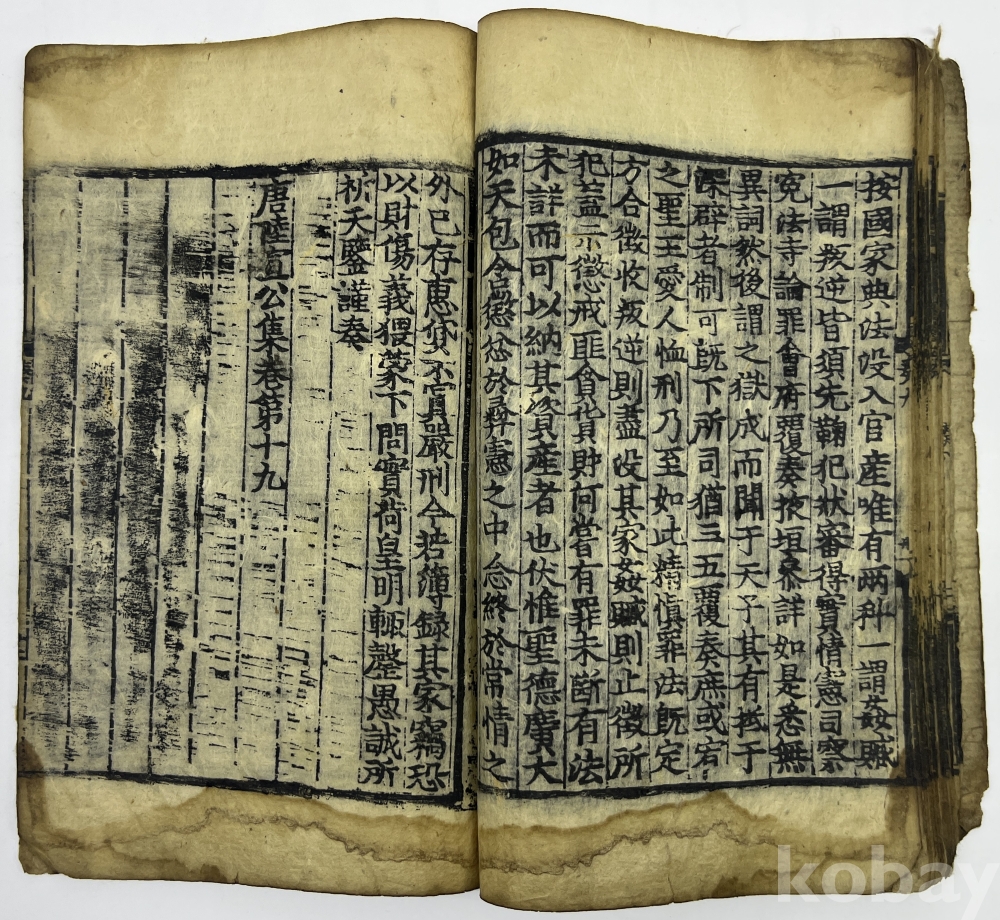 按國家典法沒入官産唯有兩科一謂姦贓
一謂叛逆皆須先鞠犯狀審得實情憲司察
寃法寺論罪會府覆奏掖垣叅詳如是悉無
異詞然後謂之獄成而聞于天子其有抵于
深辟者制可旣下所司猶三五覆奏庶或宥
之聖王愛人恤刑乃至如此精愼罪法旣定
方合徵收叛逆則盡沒其家姦贓則止徵所
犯蓋示懲戒匪貪貨財何嘗有罪未斷有法
未詳而可以納其資産者也伏惟聖德廣大
如天包含忿於彛憲之中念終於常情之
外已存惠貸不寘嚴刑今若簿録其家竊恐
以財傷義猥蒙下問實荷皇明輒罄愚誠所
祈天鑒謹奏
唐陸宣公集卷第十九
kobay